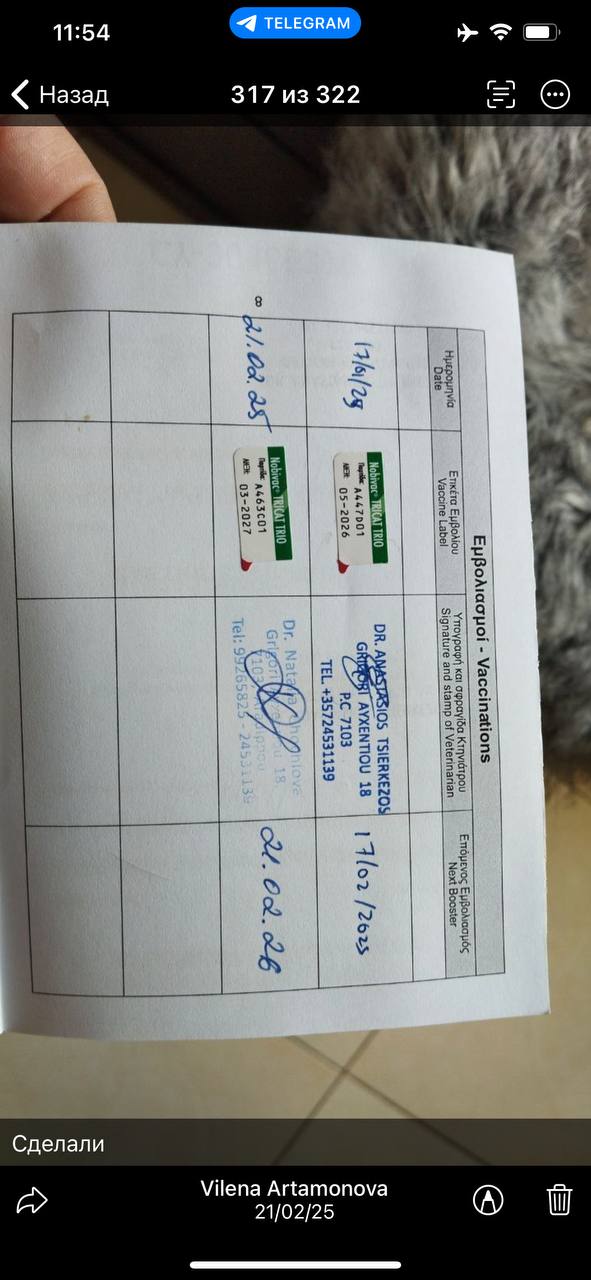 11:54
TELEGRAM
Назад
317 из 322
Εμβολιασμοί - Vaccinations
Ημερομηνία
Date
Ετικέτα Εμβολίου
Vaccine Label
Υπογραφή και σφραγίδα Κτηνιάτρου
Signature and stamp of Veterinarian
Επόμενος Εμβολιασμός
Next Booster
17/01/25
Nobivac TRICAT TRIO
Παρτίδα: A447D01
ΛΗΞΗ: 05-2026
DR. ANASTASIOS TSIERKEZOS
GRIGORI AYXENTIOU 18
P.C 7103
TEL. +35724531139
17/02/2025
8
21.02.25
Nobivac TRICAT TRIO
Παρτίδα: A463C01
ΛΗΞΗ: 03-2027
Dr.
18
7103
Tel: 99265825 - 24531139
21.02.26
Сделали
Vilena Artamonova
21/02/25